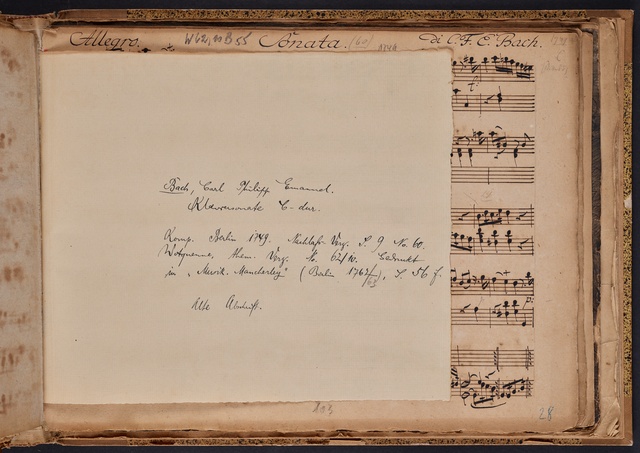 Allegro. W 62, 10 B 55 Sonata. (60) di C. F. E. Bach.
Bach, Carl Philipp Emanuel.
Klaviersonate C-dur.
Komp. Berlin 1749. Nachlaß-Verz. S. 9 No 60.
Wotquenne, them. Verz. No. 62/10. Gedruckt
in „Musik. Mancherley" (Berlin 1762/63), S. 56 f.
Alte Abschrift.
p:
103
28